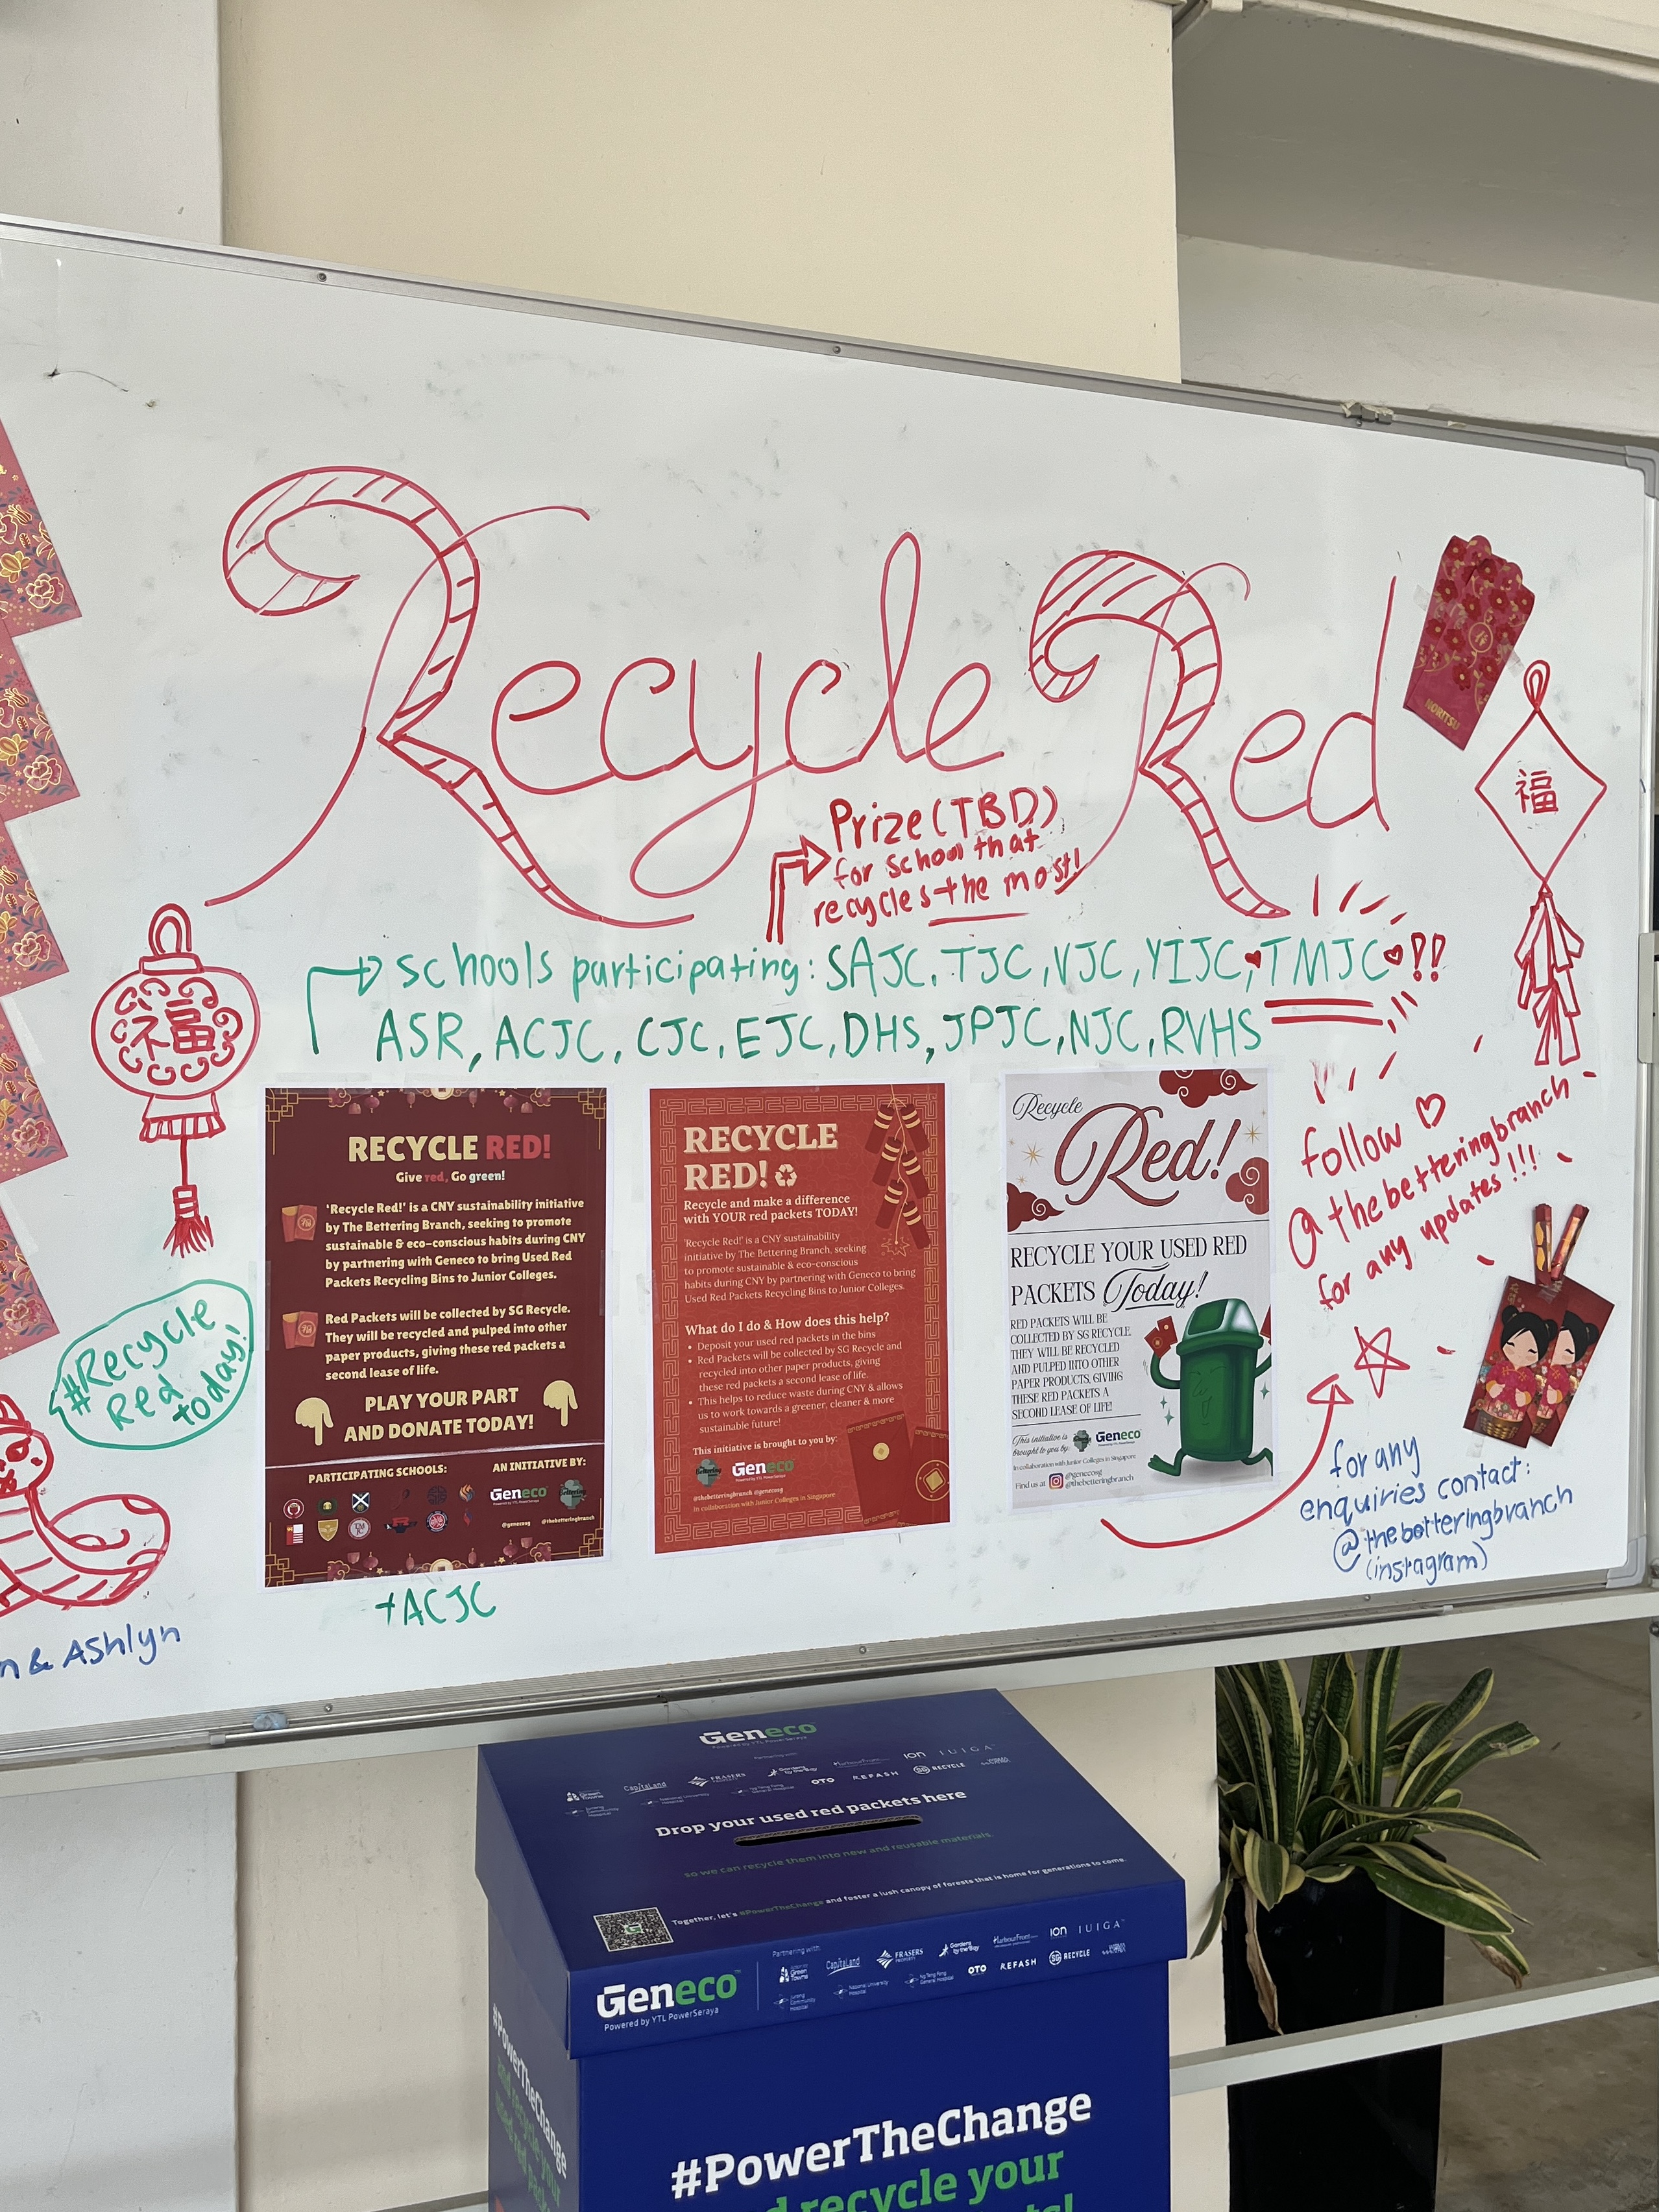 Recycle Red
NORITSU
福
Prize (TBD)
for school that
recycles the most!
schools participating: SAJC, TJC, VJC, YIJC, TMJC !!
ASR, ACJC, CJC, EJC, DHS, JPJC, NJC, RVHS
福
#Recycle
Red
today!
n & Ashlyn
RECYCLE RED!
Give red, Go green!
'Recycle Red!' is a CNY sustainability initiative
by The Bettering Branch, seeking to promote
sustainable & eco-conscious habits during CNY
by partnering with Geneco to bring Used Red
Packets Recycling Bins to Junior Colleges.
Red Packets will be collected by SG Recycle.
They will be recycled and pulped into other
paper products, giving these red packets a
second lease of life.
PLAY YOUR PART
AND DONATE TODAY!
PARTICIPATING SCHOOLS:
AN INITIATIVE BY:
Geneco
@genecosg @thebetteringbranch
+ACJC
RECYCLE
RED!
Recycle and make a difference
with YOUR red packets TODAY!
'Recycle Red!' is a CNY sustainability
initiative by The Bettering Branch, seeking
to promote sustainable & eco-conscious
habits during CNY by partnering with Geneco to bring
Used Red Packets Recycling Bins to Junior Colleges.
What do I do & How does this help?
• Deposit your used red packets in the bins
• Red Packets will be collected by SG Recycle and
recycled into other paper products, giving
these red packets a second lease of life.
• This helps to reduce waste during CNY & allows
us to work towards a greener, cleaner & more
sustainable future!
This initiative is brought to you by:
Geneco
@thebetteringbranch @genecosg
In collaboration with Junior Colleges in Singapore
Recycle
Red!
RECYCLE YOUR USED RED
PACKETS Today!
RED PACKETS WILL BE
COLLECTED BY SG RECYCLE.
THEY WILL BE RECYCLED
AND PULPED INTO OTHER
PAPER PRODUCTS, GIVING
THESE RED PACKETS A
SECOND LEASE OF LIFE!
This initiative is
brought to you by:
Geneco
In collaboration with Junior Colleges in Singapore
Find us at @genecosg
@thebetteringbranch
follow
@thebetteringbranch
for any updates!!!
for any
enquiries contact:
@thebetteringbranch
(instagram)
Geneco
Partnering with
CapitaLand
FRASERS PROPERTY
Gardens by the Bay
HarbourFront
ION
IUIGA
Green Towns
OTO
REFASH
SG RECYCLE
Drop your used red packets here
so we can recycle them into new and reusable materials.
Together, let's #PowerTheChange and foster a lush canopy of forests that is home for generations to come.
Geneco
Powered by YTL PowerSeraya
Partnering with
Green Towns
CapitaLand
FRASERS PROPERTY
Gardens by the Bay
HarbourFront
ION
IUIGA
Jurong Community Hospital
National University Hospital
Ng Teng Fong General Hospital
OTO
REFASH
SG RECYCLE
#PowerTheChange
and recycle your
#PowerTheChange
recycle your